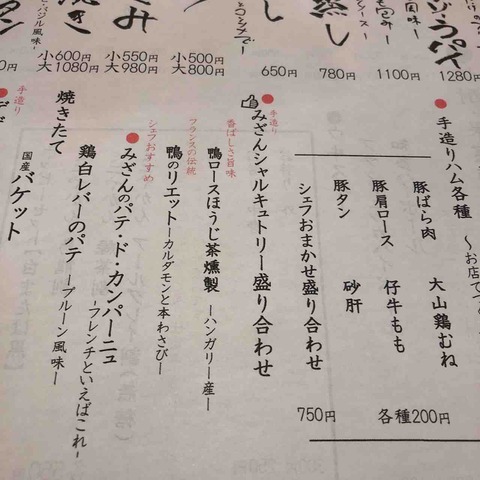 780円
1100円
1280円
650円
小500円
大800円
小550円
大980円
小600円
大1080円
蒸し
手造りハム各種
豚ばら肉　大山鶏むね
豚肩ロース　仔牛もも
豚タン　砂肝
各種200円
シェフおまかせ盛り合わせ
750円
手造り
みざんシャルキュトリー盛り合わせ
香ばしさ旨味
鴨ロースほうじ茶燻製 ーハンガリー産ー
フランスの伝統
鴨のリエット ーカルダモンと本わさびー
シェフおすすめ
みざんのパテ・ド・カンパーニュ
ーフレンチといえばこれー
鶏白レバーのパテ ープルーン風味ー
焼きたて
国産バケット
手造り